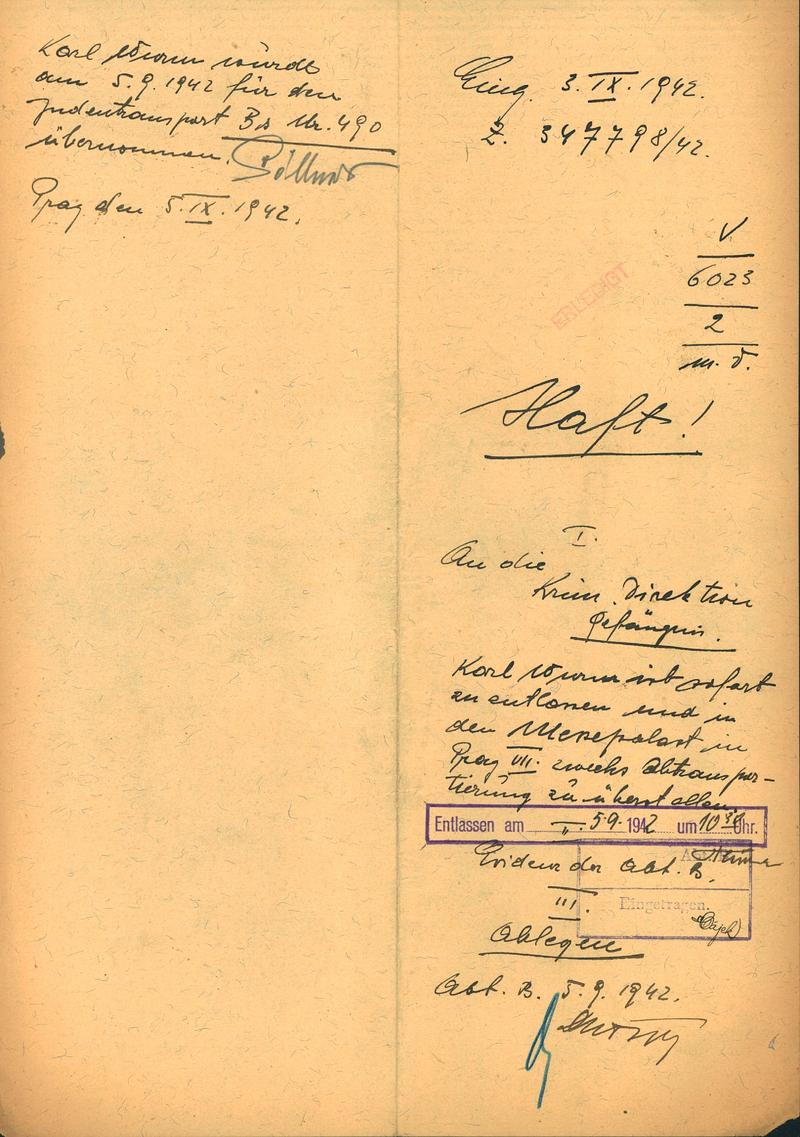 Karl Wurm wurde
am 5.9.1942 für den
Judentransport Bd Nr. 490
übernommen.
Prag den 5.IX.1942.
Eing. 3.IX.1942.
Z. 347798/42.
V
6023
2
m. d.
ERLEDIGT
Haft!
I.
An die
Krim. Direktion
Gefängnis.
Karl Wurm ist sofort
zu entlassen und in
den Messepalast in
Prag VII. zwecks Abtranspor-
tierung zu überstellen.
II.
Entlassen am 5.9. 1942 um 10 30 Uhr.
Evidenz der Abt. B.
III.
Eingetragen.
Ablegen
Abt. B. 5.9.1942.